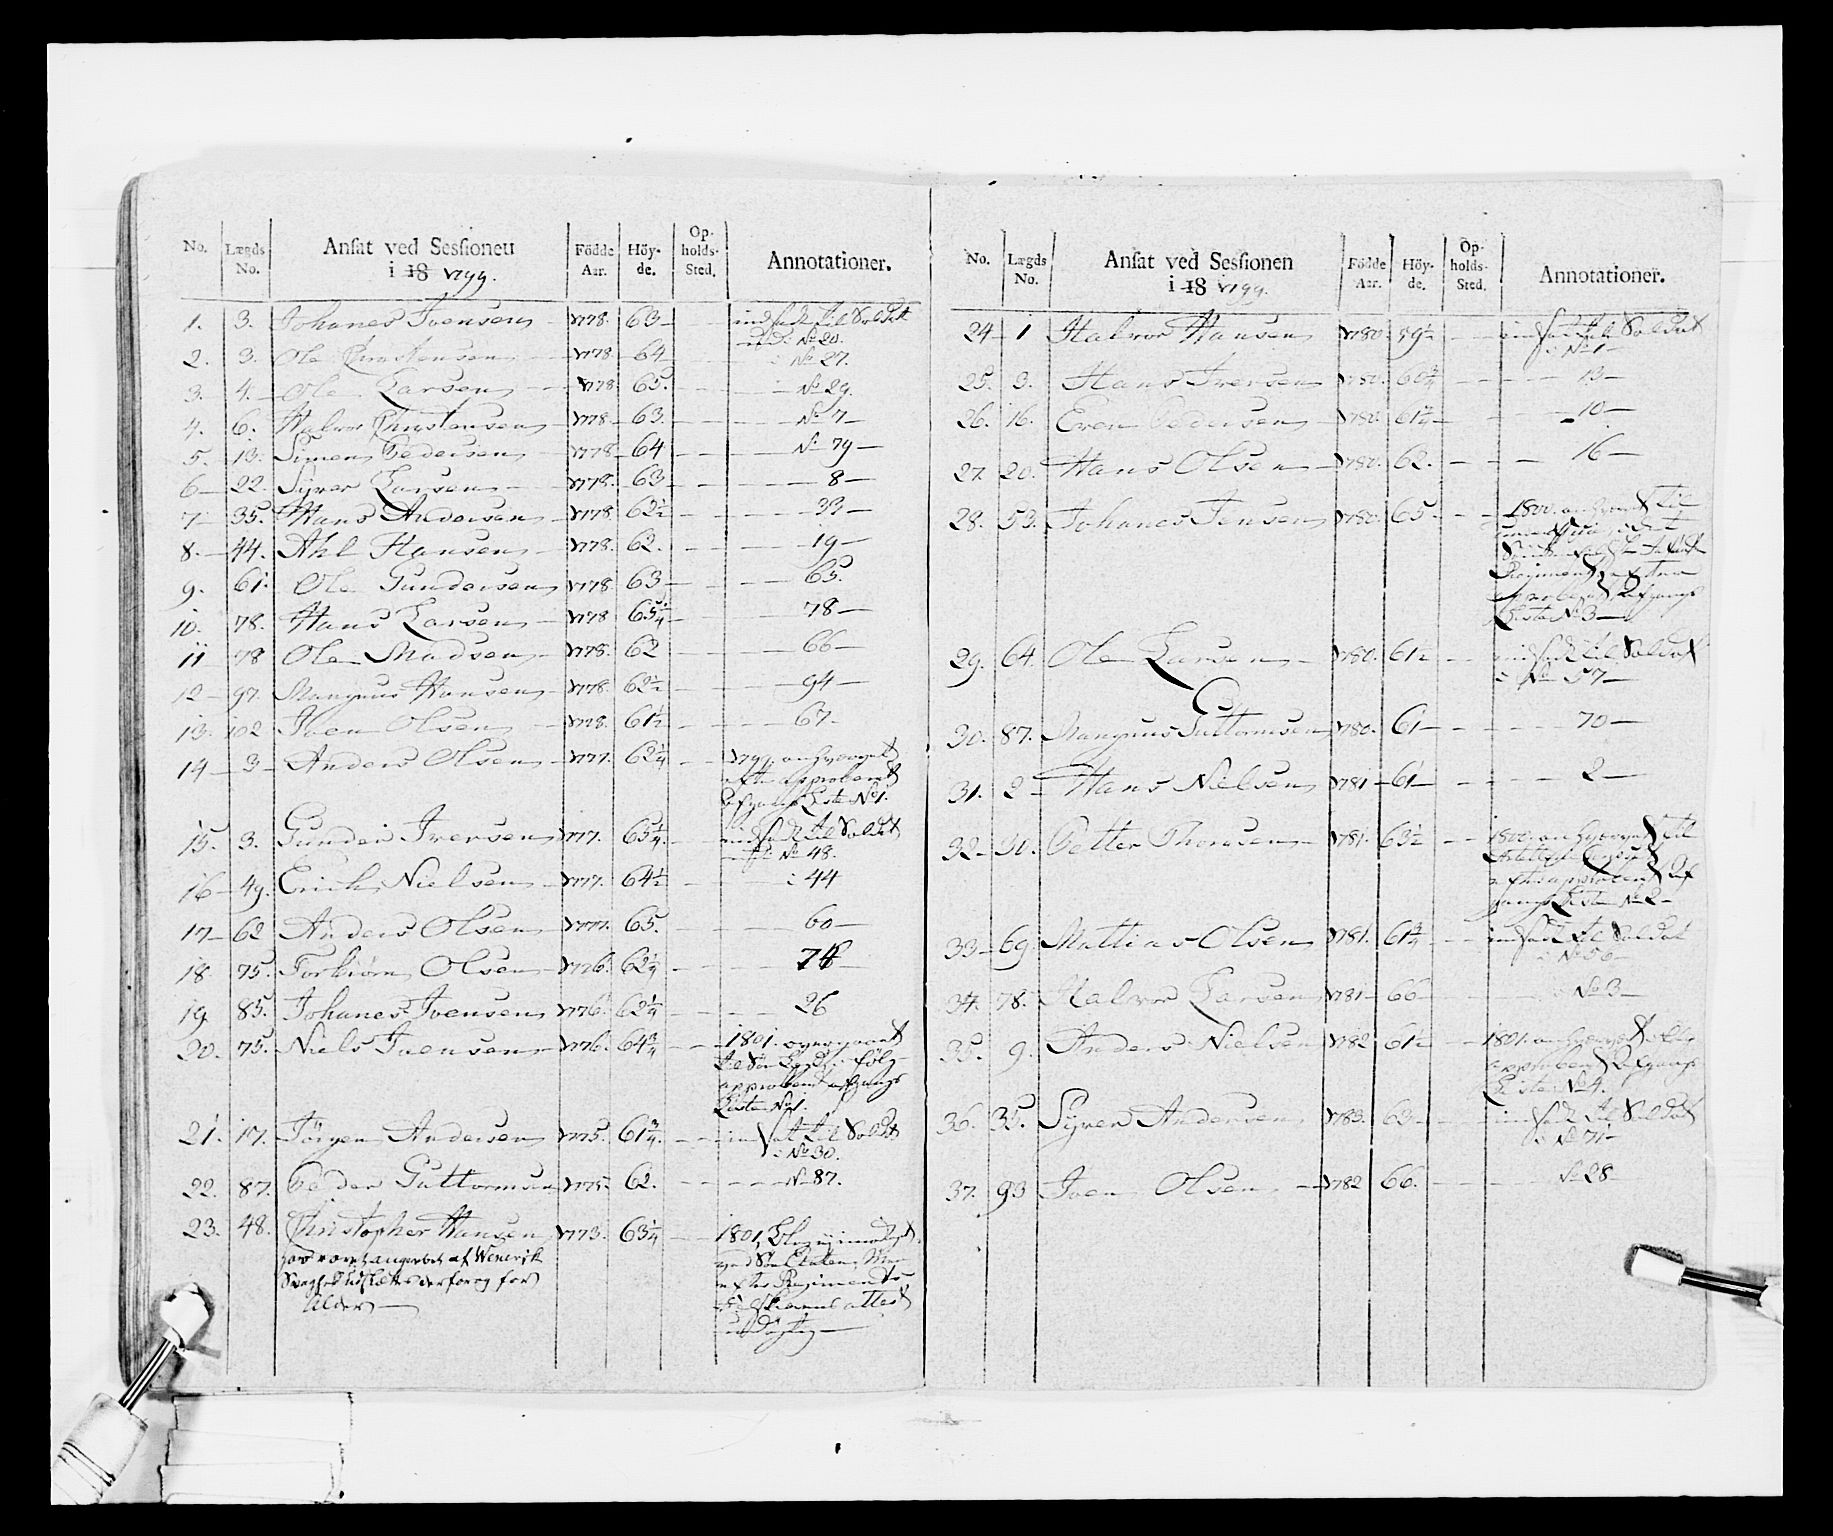 No. Lægds No. Ansat ved Sessionen i 18 1799. Födde Aar. Höyde. Opholds-Sted. Annotationer.
1. 3. Johanes Ivensen 1778. 63 indsadt til Soldat
No 20.
2. 3. Ole Christensen 1778 64 No 27.
3. 4. Ole Larsen 1778. 65. No 29.
4. 6. Halvor Christensen 1778 63. No 7
5. 13. Simen Pedersen 1778 64 No 79
6 22. Syver Larsen 1778. 63 8
7 35. Hans Andersen 1778 62½ 33
8. 44. Ahl Hansen 1778. 62. 19
9. 61. Ole Gundersen 1778 63 65.
10. 78. Hans Larsen 1778 65¼ 78
11 78 Ole Madsen 1778. 62 66
12 97. Mangnus Hansen 1778. 62½ 94
13. 102 Iven Olsen 1778. 61½ 67.
14 3 Anders Olsen 1777. 62¼ 1799. anhvervet
efter approberet
Afgangs Liste No 1.
15. 3. Gunder Iversen 1777. 65¼. indsadt til Soldat
No 48.
16 49. Erich Nielsen 1777. 64½ i 44
17 62 Anders Olsen 1777. 65. 60
18 75. Torbiörn Olsen 1776. 62¼ 74
19 85. Johanes Ivensen 1776. 62¼ 26
20. 75. Niels Ivensen 1776. 64¾ 1801. overgaaet
til Söe Lægd: fölg
approberet afgangs
Liste No 1.
21. 17. Jörgen Andersen 1775. 61¾. indsat til Soldat
i No 30.
22. 87. Peder Guttormsen 1775. 62. No 87.
23. 48. Christopher Hansen 1773. 63¼ 1801,
har været angreben af Venerisk
Svaghed udslettes derfor og for
Alder
efter Regiments
attest
udygtig
No. Lægds No. Ansat ved Sessionen i 18 1799. Födde Aar. Höyde. Opholds-Sted. Annotationer.
24 1 Halvor Hansen 1780 59½ indsadt til Soldat
i No 1
25. 3. Hans Iversen 1780. 60¾ 13
26. 16. Even Pedersen 1780. 61¼ 10
27. 20. Hans Olsen 1780. 62. 16
28. 53. Johanes Jensen 1780. 65. 1800. anhvervet til
Regiment
approberet Afgangs
Liste No 3
29. 64. Ole Larsen 1780. 61½ indsadt til Soldat
i No 57
30. 87. Mangnus Guttormsen 1780. 61 70
31. 2 Hans Nielsen 1781 61 2
32 30. Petter Thoresen 1781. 63½ 1800. anhvervet til
approberet Af
gangs Liste No 2
33 69. Mattias Olsen 1781. 61¾ indsadt til Soldat
i No 50
34. 78. Halvor Larsen 1781 66 No 3
35. 9. Anders Nielsen 1782 61½ 1801. anhvervet
approberet Afgangs
Liste No 4.
36. 35. Syver Andersen 1783. 63 indsadt til Soldat
i No 71
37. 93 Iven Olsen 1782 66. No 28